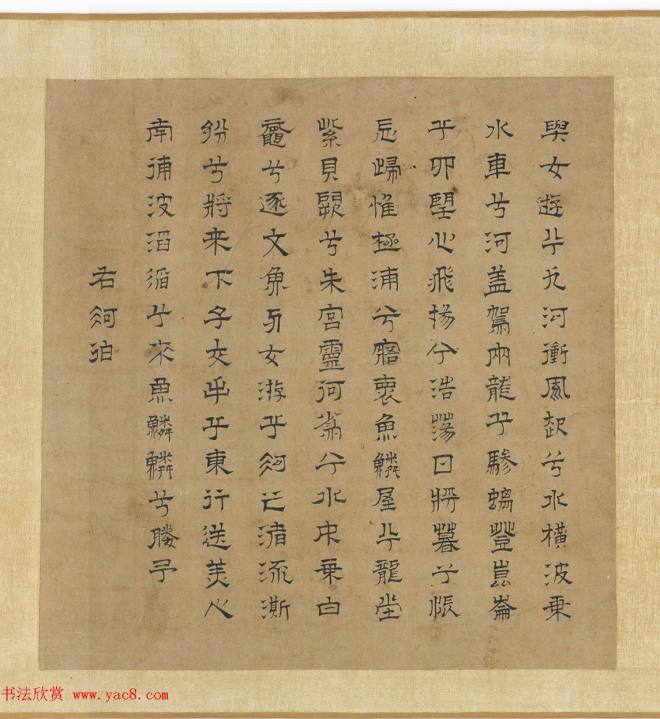 與女遊兮九河衝風起兮水橫波乗
水車兮河盖駕兩龍兮驂螭登崑崙
兮四望心飛揚兮浩蕩日將暮兮悵
忘歸惟極浦兮寤褱魚鱗屋兮龍堂
紫貝闕兮朱宮靈何為兮水中乗白
黿兮逐文魚与女游兮河之渚流澌
紛兮將来下子交手兮東行送美人
南浦波滔滔兮来魚鱗鱗兮媵予
右河伯
书法欣赏 www.yac8.com